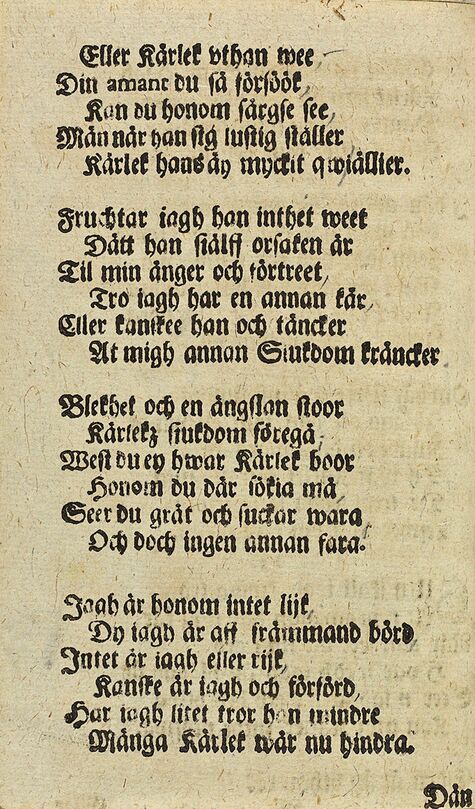 Eller Kärlek vthan wee,
Din amant du så försöök,
Kan du honom särgse see,
Män när han sig lustig ställer
Kärlek hans äy myckit qwiällier.

Fruchtar iagh han inthet weet
Dätt han siälff orsaken är
Til min ånger och förtreet,
Tro iagh har en annan kär,
Eller kanskee han och täncker
At migh annan Siukdom kräncker.

Blekhet och en ängslan stoor
Kärlekz siukdom föregå,
West du ey hwar Kärlek boor
Honom du där sökia må,
Seer du gråt och suckar wara,
Och doch ingen annan fara.

Jagh är honom intet lijk,
Dy iagh är aff främmand börd,
Intet är iagh eller rijk,
Kanske är iagh och förförd,
Har iagh litet tror han mindre
Många Kärlek wär nu hindra.

Dän